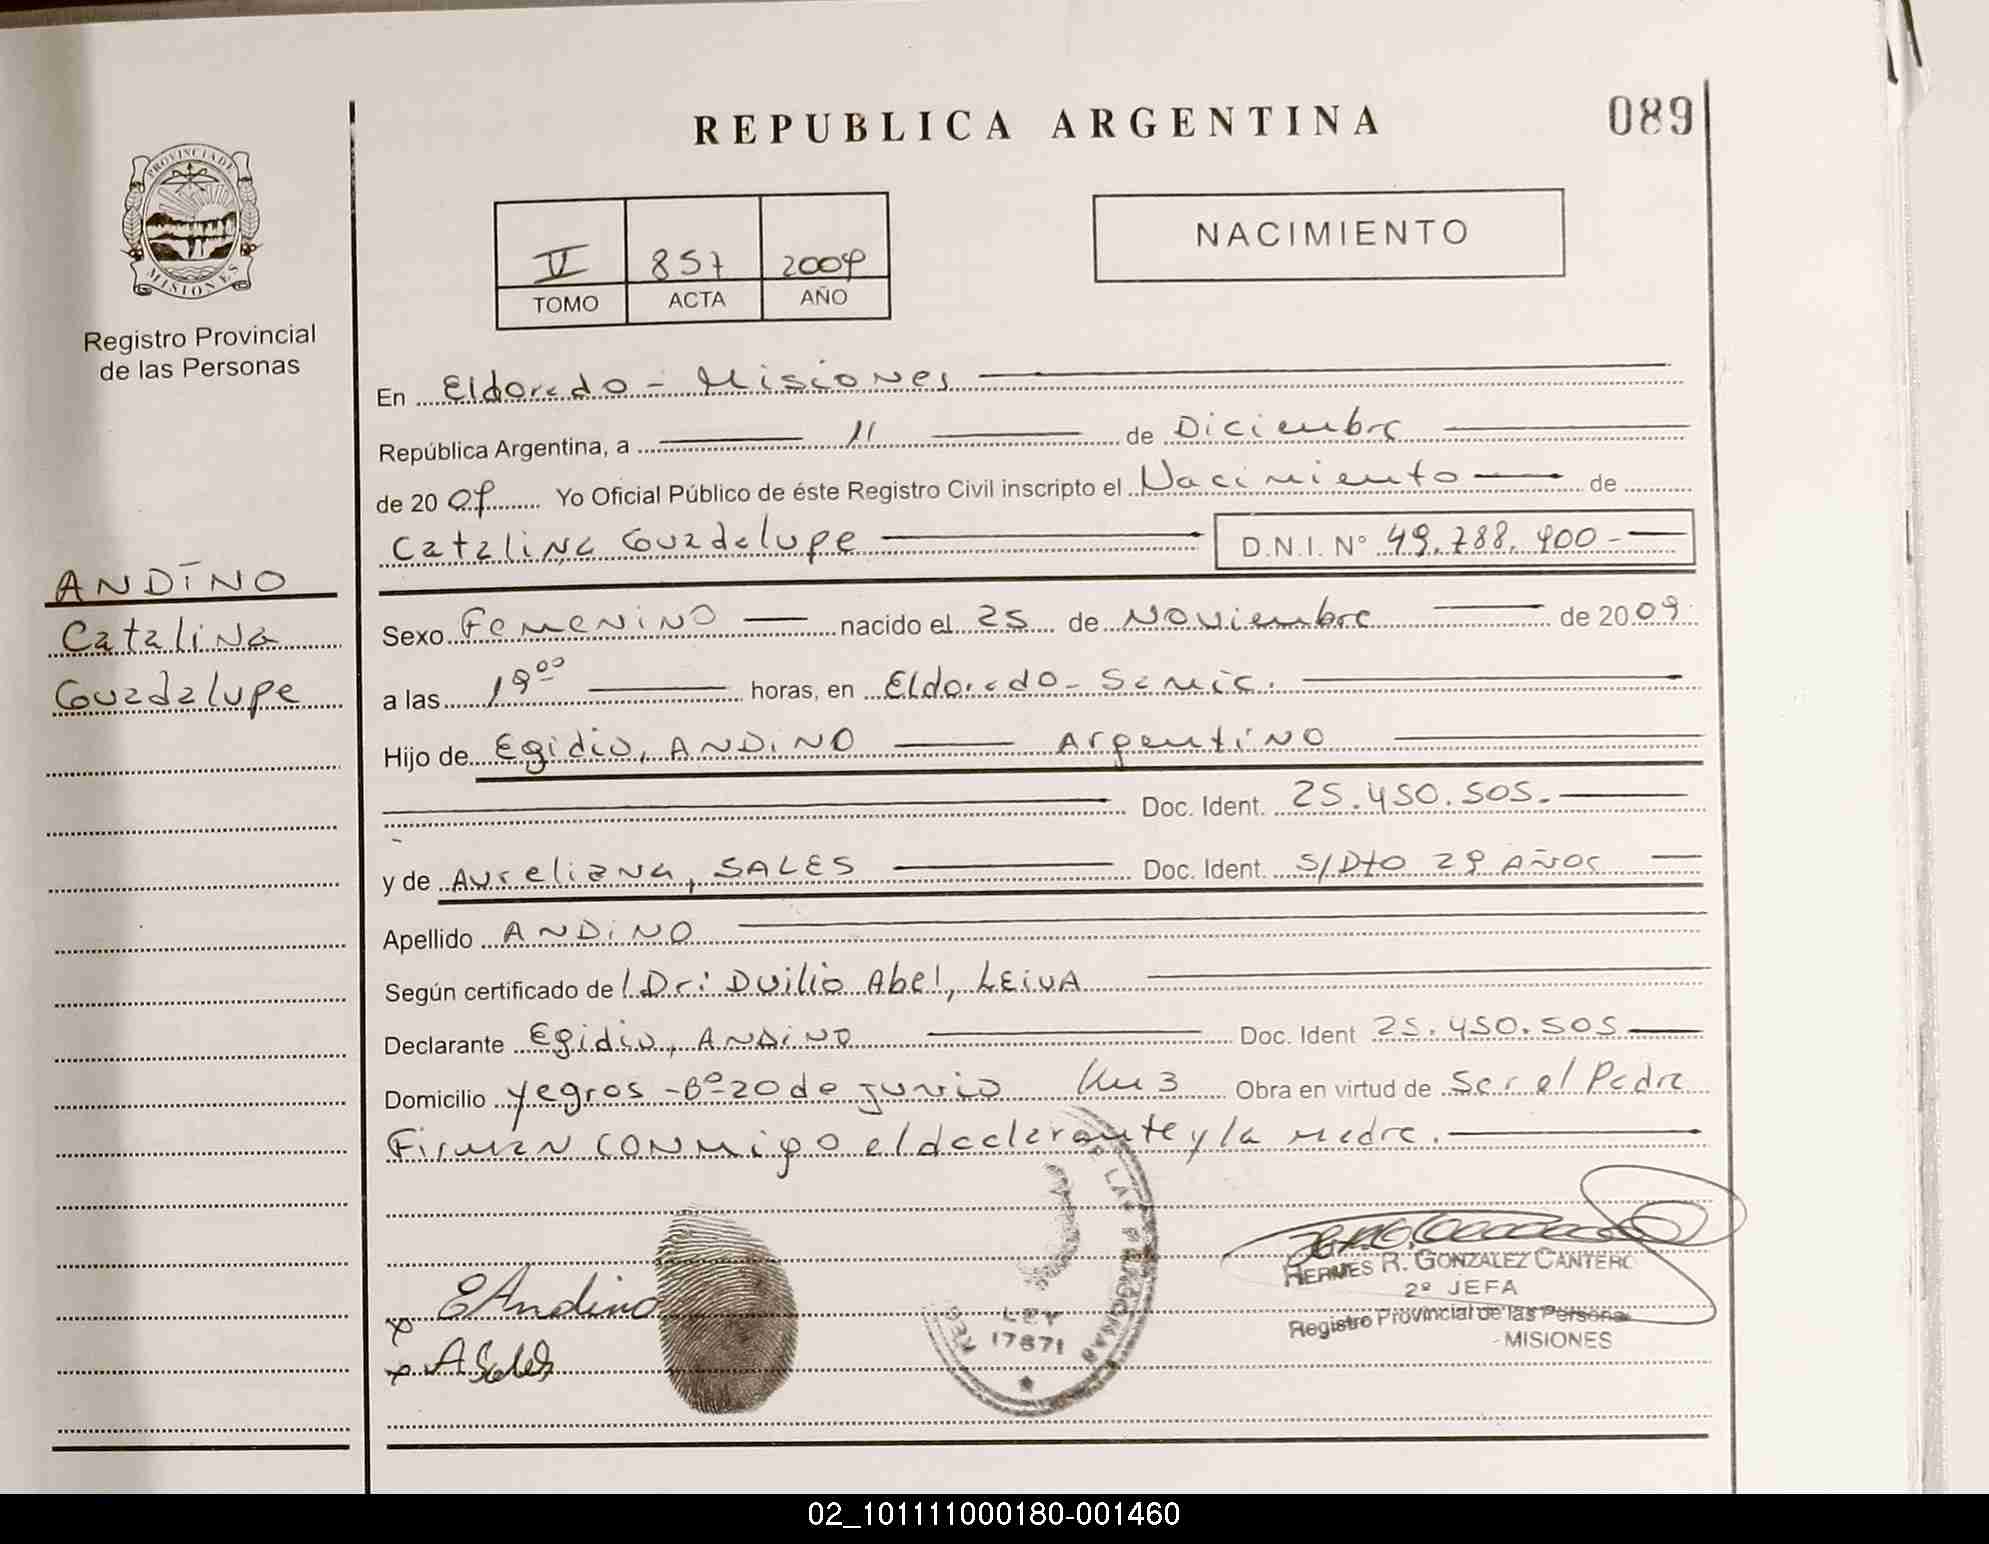 REPUBLICA ARGENTINA
089
PROVINCIA DE
MISIONES
Registro Provincial
de las Personas
V 857 2009
TOMO ACTA AÑO
NACIMIENTO
En Eldorado - Misiones
República Argentina, a 11 de Diciembre
de 20 09 Yo Oficial Público de éste Registro Civil inscripto el Nacimiento de
Catalina Guadalupe D.N.I. Nº 49.788.900-
ANDINO
Catalina
Guadalupe
Sexo Femenino nacido el 25 de Noviembre de 20 09
a las 19 00 horas, en Eldorado - Samic.
Hijo de Egidio, ANDINO Argentino
Doc. Ident. 25.450.505.-
y de Aureliana, SALES Doc. Ident. S/Dto 29 AÑOS
Apellido ANDINO
Según certificado de Dr: Duilio Abel, LEIVA
Declarante Egidio, ANDINO Doc. Ident 25.450.505
Domicilio Yegros - Bº 20 de junio Km 3 Obra en virtud de Ser el Padre
Firman conmigo el declarante y la madre.
E Andino
A Sales
DE LAS PERSONAS
REG
LEY
17671
HERMES R. GONZALEZ CANTERO
2º JEFA
Registro Provincial de las Personas
- MISIONES
02_101111000180-001460